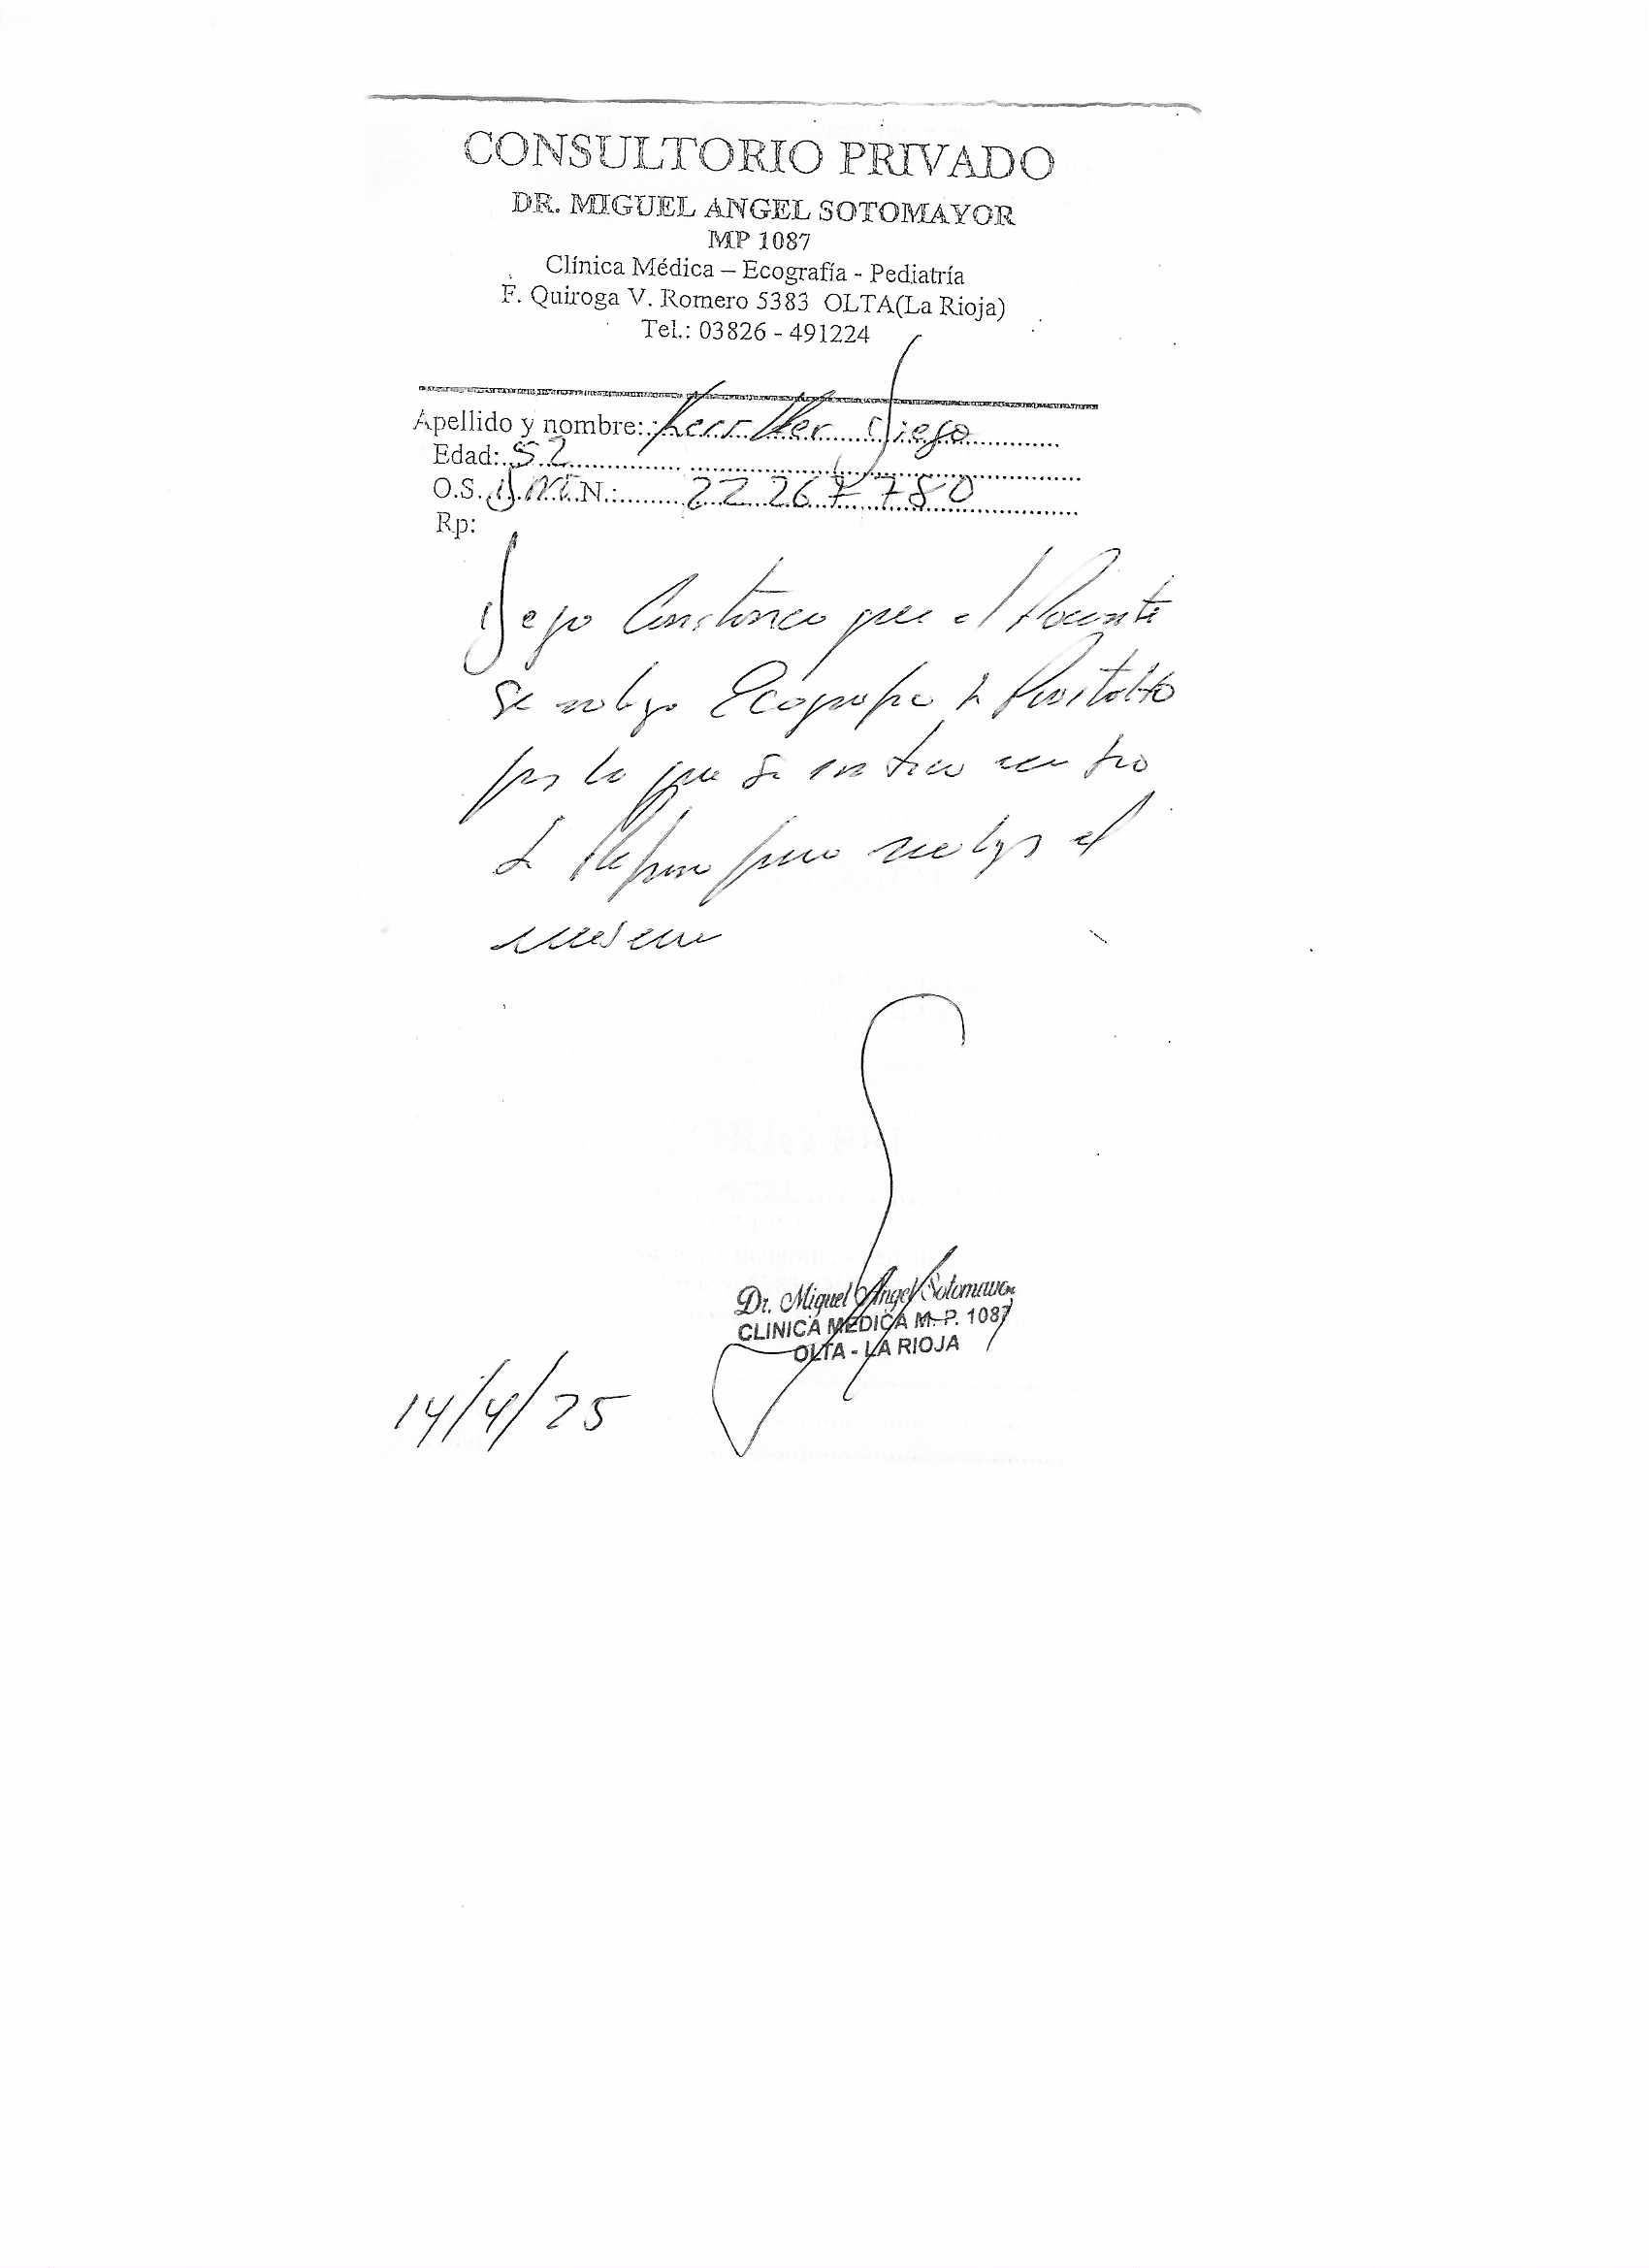 CONSULTORIO PRIVADO
DR. MIGUEL ANGEL SOTOMAYOR
MP 1087
Clínica Médica – Ecografía - Pediatría
F. Quiroga V. Romero 5383 OLTA(La Rioja)
Tel.: 03826 - 491224
Apellido y nombre: Diego
Edad: 52
O.S. N.: 22 267 780
Rp:
Dejo Constancia que el Paciente
se realizo Ecografia de
por lo que se
de para el
14/4/25
Dr. Miguel Angel Sotomayor
CLINICA MEDICA M. P. 1087
OLTA - LA RIOJA